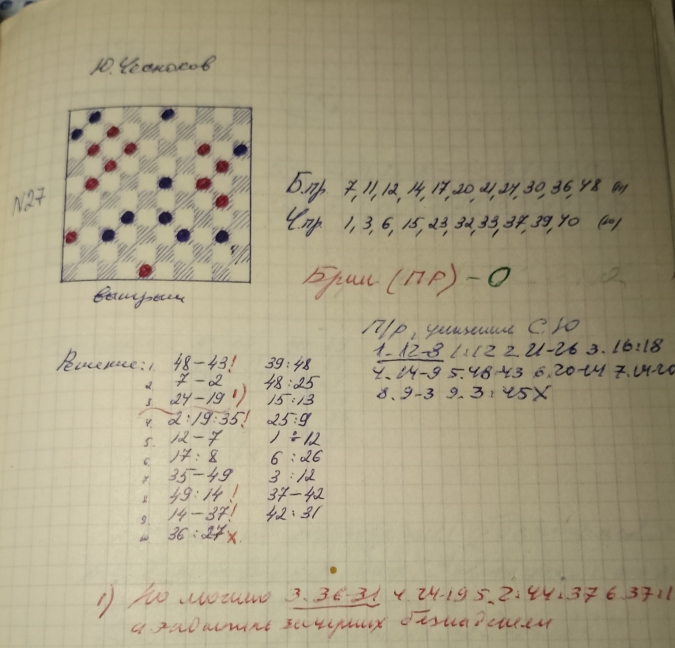 Ю. Чесноков
N27
Б.пр 7, 11, 12, 14, 17, 20, 21, 24, 30, 36, 48
Ч.пр 1, 3, 6, 15, 23, 32, 33, 37, 39, 40 (10)
(ПР) - 0
выигрыш
П/р, С. Ю
1. 12-8 1:12 2. 21-26 3. 16:18
4. 14-9 5. 48-43 6. 20-14 7. 14-20
8. 9-3 9. 3:45X
Решение: 1. 48-43! 39:48
2. 7-2 48:25
3. 24-19 1) 15:13
4. 2:19:35! 25:9
5. 12-7 1:12
6. 17:8 6:26
7. 35-49 3:12
8. 49:14! 37-42
9. 14-37! 42:31
10. 36:27X
1) Но можно 3. 36-31 4. 24-19 5. 2:44:37 6. 37:1